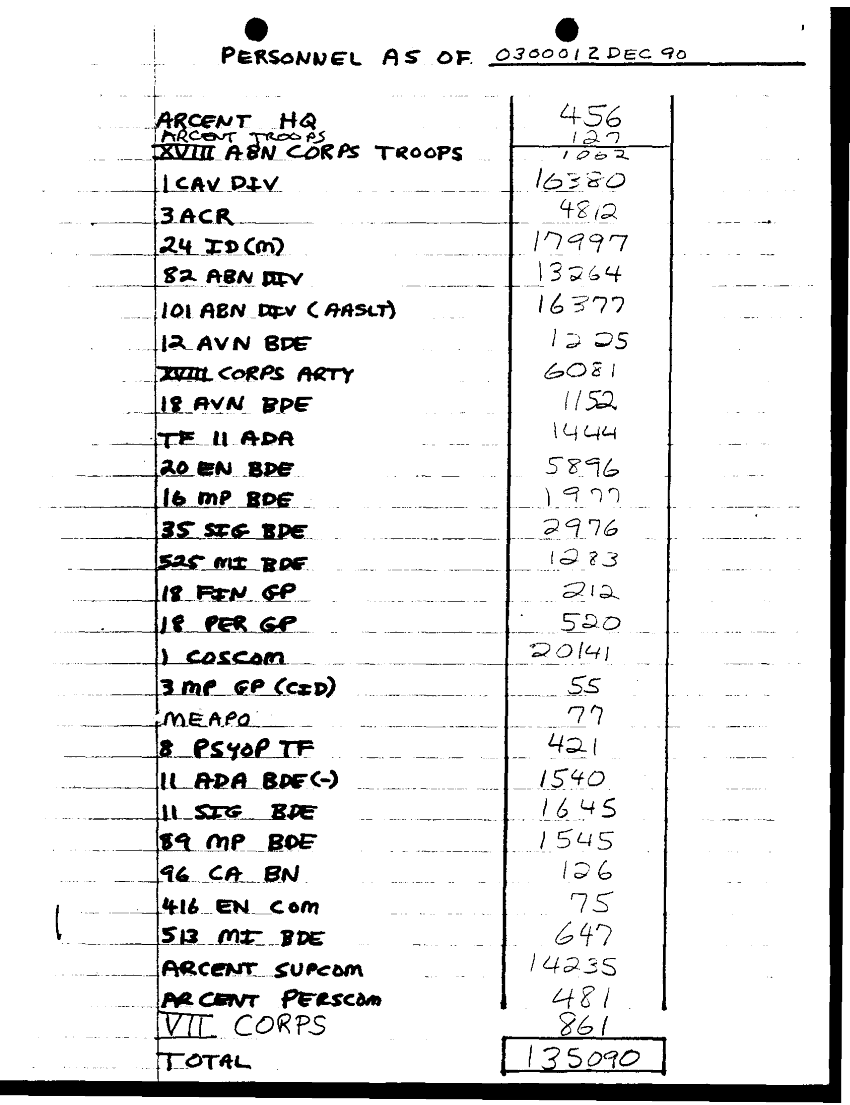 PERSONNEL AS OF 030001Z DEC 90
ARCENT HQ 456
ARCENT TROOPS 127
XVIII ABN CORPS TROOPS 1062
1 CAV DIV 16380
3 ACR 4812
24 ID (M) 17997
82 ABN DIV 13264
101 ABN DIV (AASLT) 16377
12 AVN BDE 1225
XVIII CORPS ARTY 6081
18 AVN BDE 1152
TF 11 ADA 1444
20 EN BDE 5896
16 MP BDE 1977
35 SIG BDE 2976
525 MI BDE 1283
18 FIN GP 212
18 PER GP 520
1 COSCOM 20141
3 MP GP (CID) 55
MEAPO 77
8 PSYOP TF 421
11 ADA BDE (-) 1540
11 SIG BDE 1645
89 MP BDE 1545
96 CA BN 126
416 EN COM 75
513 MI BDE 647
ARCENT SUPCOM 14235
ARCENT PERSCOM 481
VII CORPS 861
TOTAL 135090